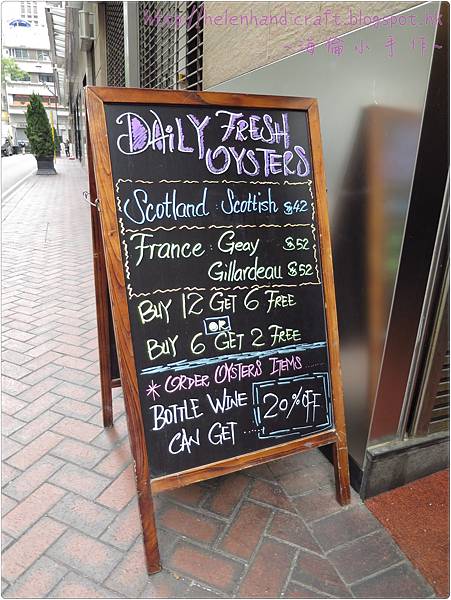 http://helenhandicraft.blogspot.hk
~海倫小手作~
DAiLY FRESH
OYSTERS
Scotland : Scottish $42
France : Geay $52
Gillardeau $52
BUY 12 GET 6 FREE
OR
BUY 6 GET 2 FREE
* ORDER OYSTERS ITEMS ......
BOTTLE WINE
CAN GET ......
20% OFF